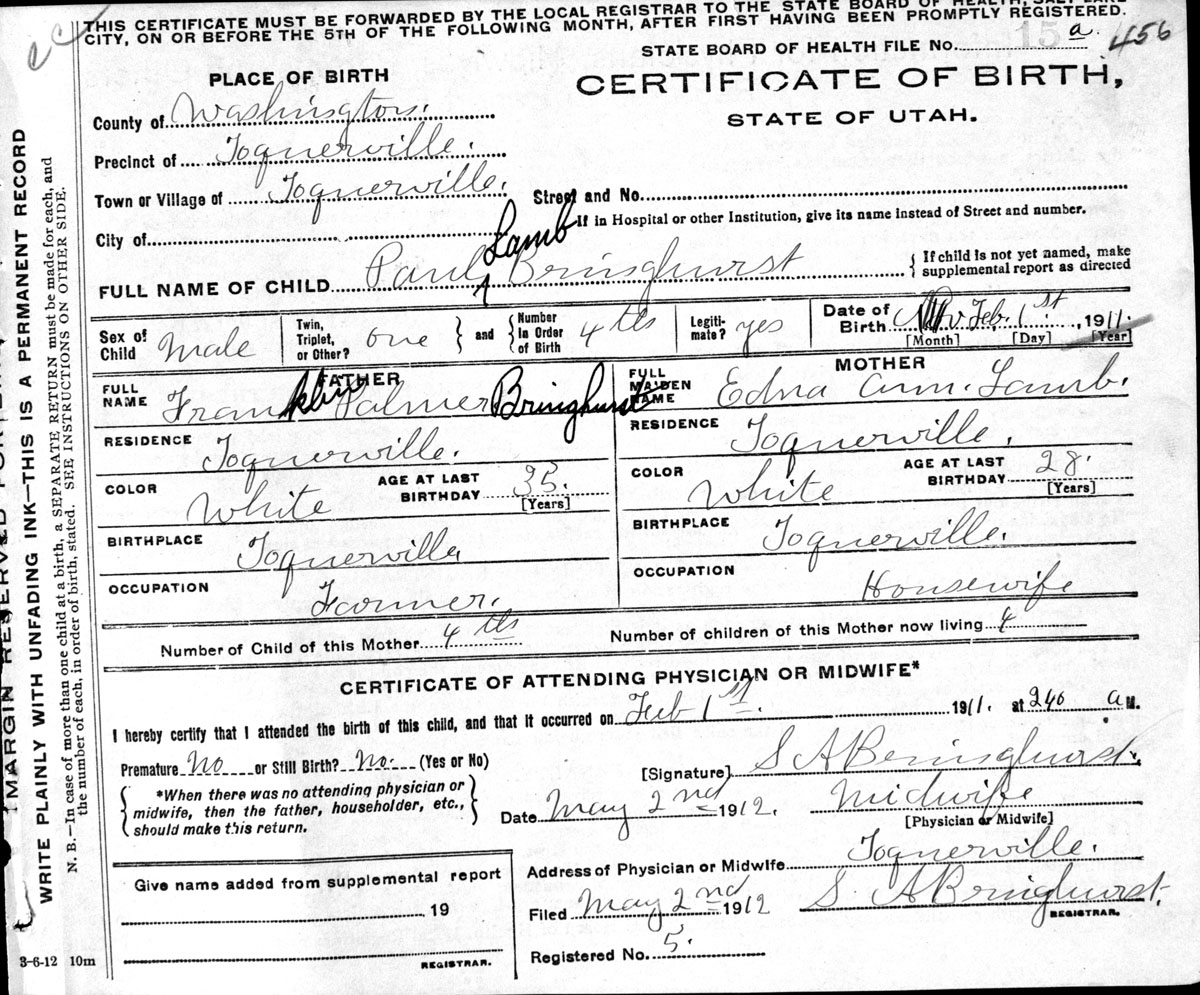 THIS CERTIFICATE MUST BE FORWARDED BY THE LOCAL REGISTRAR TO THE STATE BOARD OF HEALTH, SALT LAKE
CITY, ON OR BEFORE THE 5TH OF THE FOLLOWING MONTH, AFTER FIRST HAVING BEEN PROMPTLY REGISTERED.
STATE BOARD OF HEALTH FILE No. 15 a. 456
PLACE OF BIRTH
CERTIFICATE OF BIRTH,
STATE OF UTAH.
County of Washington.
Precinct of Toquerville.
Town or Village of Toquerville. Street and No.
If in Hospital or other Institution, give its name instead of Street and number.
City of
FULL NAME OF CHILD Paul Lamb Bringhurst
If child is not yet named, make
supplemental report as directed
Sex of Child Male
Twin, Triplet, or Other? one
and
Number In Order of Birth 4 th
Legiti-mate? yes
Date of Birth Feb. 1st. , 1911.
[Month] [Day] [Year]
FATHER
FULL NAME Franklin Palmer Bringhurst
RESIDENCE Toquerville.
COLOR White AGE AT LAST BIRTHDAY 35. [Years]
BIRTHPLACE Toquerville.
OCCUPATION Farmer.
MOTHER
FULL MAIDEN NAME Edna Ann. Lamb.
RESIDENCE Toquerville.
COLOR White AGE AT LAST BIRTHDAY 28. [Years]
BIRTHPLACE Toquerville.
OCCUPATION Housewife
Number of Child of this Mother 4 th Number of children of this Mother now living 4
CERTIFICATE OF ATTENDING PHYSICIAN OR MIDWIFE*
I hereby certify that I attended the birth of this child, and that it occurred on Feb 1 st. 1911. at 240 a M.
Premature No or Still Birth? No. (Yes or No)
*When there was no attending physician or
midwife, then the father, householder, etc.,
should make this return.
[Signature] S A Bringhurst.
Date May 2nd 1912. Midwife
[Physician or Midwife]
Address of Physician or Midwife Toquerville.
Filed May 2nd 1912 S. A Bringhurst.
REGISTRAR.
Registered No. 5.
Give name added from supplemental report
19
REGISTRAR.
3-6-12 10m
MARGIN RESERVED FOR
WRITE PLAINLY WITH UNFADING INK—THIS IS A PERMANENT RECORD
N. B.—In case of more than one child at a birth, a SEPARATE RETURN must be made for each, and
the number of each, in order of birth, stated. SEE INSTRUCTIONS ON OTHER SIDE.